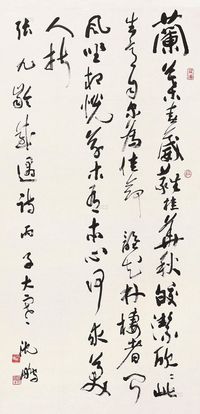 蘭葉春葳蕤桂華秋皎潔欣欣此
生意自爾為佳節誰知林棲者聞
風坐相悅草木有本心何求美
人折
張九齡感遇詩丙子大寒沈鵬